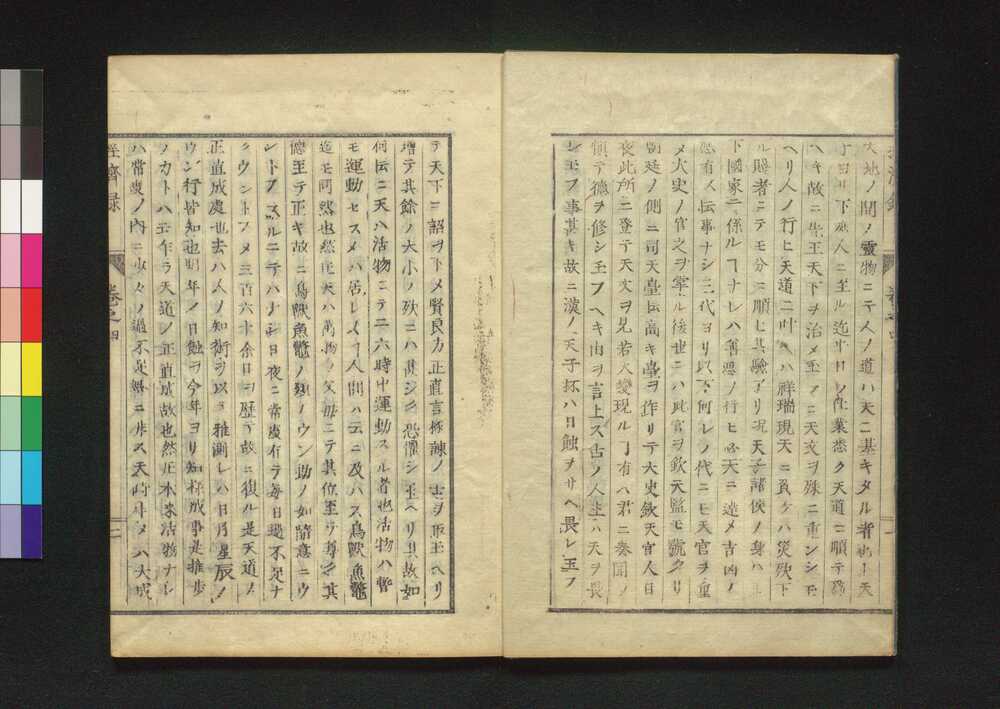 天地ノ間ノ靈物ニテ人ノ道ハ天ニ基キタル者也上天
子ヨリ下庶人ニ至ル迄 作業悉ク天道ニ順テ爲
ヘキ故ニ先王天下ヲ治メ玉フニ天文ヲ殊ニ重シシ玉
ヘリ人ノ行ヒ天道ニ叶ヘハ祥瑞現天ニ負ケハ災殃下
ル賤者ニテモ分ニ順ヒ其驗アリ况天子諸侯ノ身ハ
下國家ニ係ルヿナレハ善惡ノ行ヒ必天ニ達メ吉凶ノ
應有ヿ云事ナシ三代ヨリ以下何レノ代ニモ天官ヲ重
メ大史ノ官之ヲ掌ル後世ニハ此官ヲ欽天監モ號ケリ
朝廷ノ側ニ司天臺云高キ臺ヲ作リテ大史欽天官人日
夜此所ニ登テ天文ヲ見若天變現ルヿ有ハ君ニ奏聞ノ
愼テ德ヲ修シ玉フヘキ由ヲ言上ス古ノ人主ハ天ヲ畏
シ玉フ事甚キ故ニ漢ノ天子抔ハ日蝕ヲサヘ畏レ玉フ
テ天下ニ詔ヲ下メ賢良方正直言極諫ノ士ヲ取玉ヘリ
增テ其餘ノ大小ノ殃ニハ甚シク恐懼シ玉ヘリ其故如
何云ニ天ハ活物ニテ二六時中運動スル者也活物ハ暫
モ運動セスメハ居レヌヿ人間ハ云ニ及ハス鳥獸魚鼈
迄モ同然也然圧天ハ萬物ノ父母ニテ其位至テ尊シ其
德至テ正キ故ニ鳥獸魚鼈ノ類ノウン動ノ如隨意ニウ
ントフスルニテハナシ日夜ニ常度有テ每日過不足ナ
クウントフメ三百六十余日ヲ歷テ故ニ復ル是天道ノ
正直成處也去ハ人ノ知術ヲ以テ推測レハ日月星辰ノ
ウン行皆知也明年ノ日蝕ヲ今年ヨリ知樣成事是推步
ノカトハ云乍ラ天道ノ正直成故也然圧本來活物ナレ
ハ常度ノ內ニ少々ノ過不足無ニ非ス天ノ時
經濟錄
卷之四